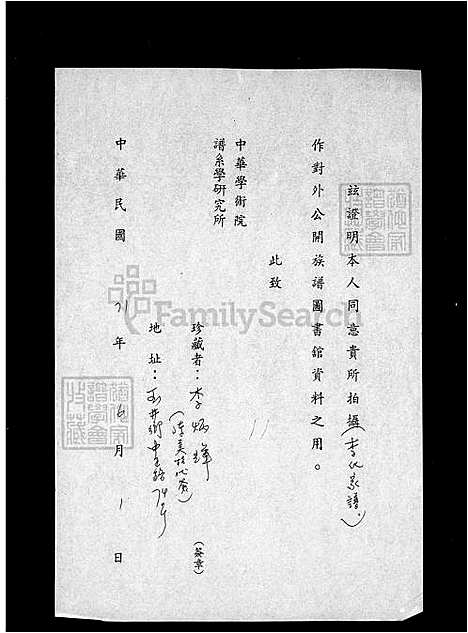 茲證明本人同意貴所拍攝(李氏家譜)
作對外公開族譜圖書館資料之用。
此致
中華學術院
譜系學研究所
珍藏者：李炳輝 (簽章)
地址：玉井鄉中正路74号
中華民國 71年6月1日
FamilySearch